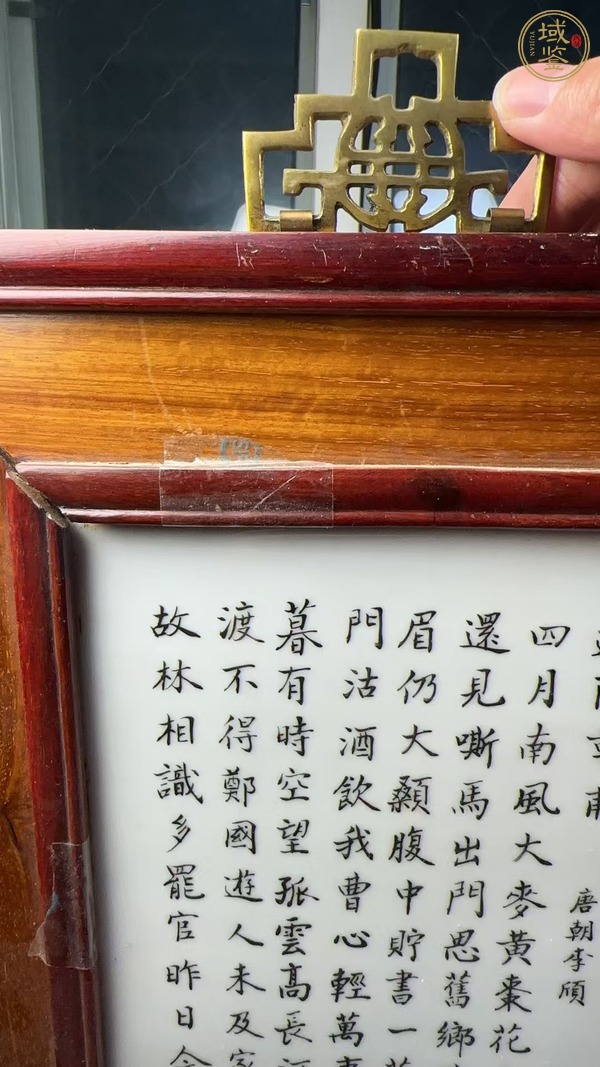 域鉴
YUJIAN
唐朝李頎
四月南風大麥黃棗花
還見嘶馬出門思舊鄉
眉仍大顙腹中貯書一
門沽酒飲我曹心輕萬
暮有時空望孤雲高長
渡不得鄭國遊人未及家
故林相識多罷官昨日今